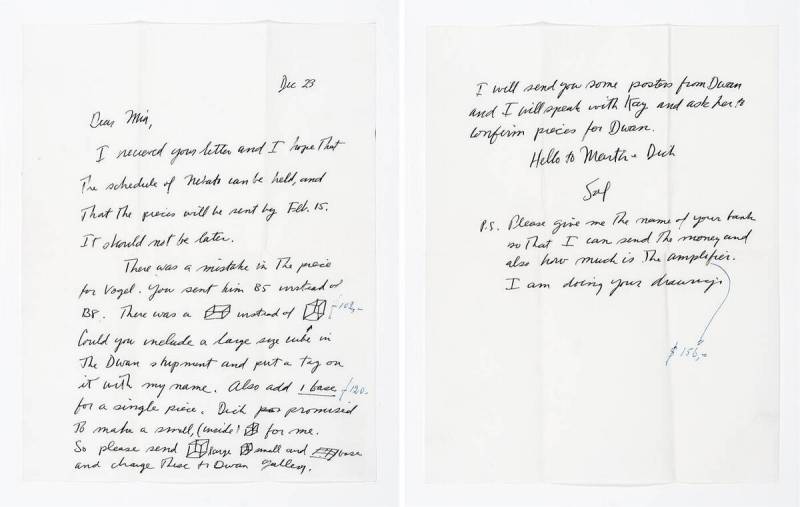 Dec 23
Dear Mia,
I recieved your letter and I hope That
The schedule of can be held, and
That The pieces will be sent by Feb. 15.
It should not be later.
There was a mistake in The piece
for Vogel. You sent him B5 instead of
B8. There was a instead of
Could you include a large size cube in
The Dwan shipment and put a tag on
it with my name. Also add 1 base 120.-
for a single piece. Dick promised
To make a small, (inside) for me.
So please send large small and base
and charge These to Dwan gallery.
I will send you some posters from Dwan
and I will speak with Kay and ask her to
confirm pieces for Dwan.
Hello to Martha + Dick
Sol
P.S. Please give me The name of your bank
so That I can send The money and
also how much is The amplifier.
I am doing your drawings
$ 156,-